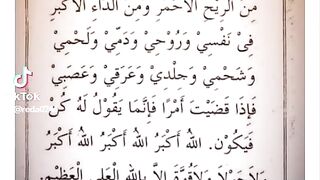 مِنَ الرِّيْحِ الْاَحْمَرِ وَمِنَ الدَّاءِ الْاَكْبَرِ
فِىْ نَفْسِيْ وَرُوْحِيْ وَدَمِّيْ وَلَحْمِيْ
وَشَحْمِيْ وَجِلْدِيْ وَعَرَقِيْ وَعَصَبِيْ
فَإِذَا قَضَيْتَ أَمْرًا فَإِنَّمَا يَقُوْلُ لَهُ كُنْ
فَيَكُوْنُ. اَللهُ اَكْبَرُ اَللهُ اَكْبَرُ اَللهُ اَكْبَرُ
وَلاَحَوْلَ وَلاَقُوَّةَ اِلاَّ بِاللهِ الْعَلِيِّ الْعَظِيْمِ.
TikTok